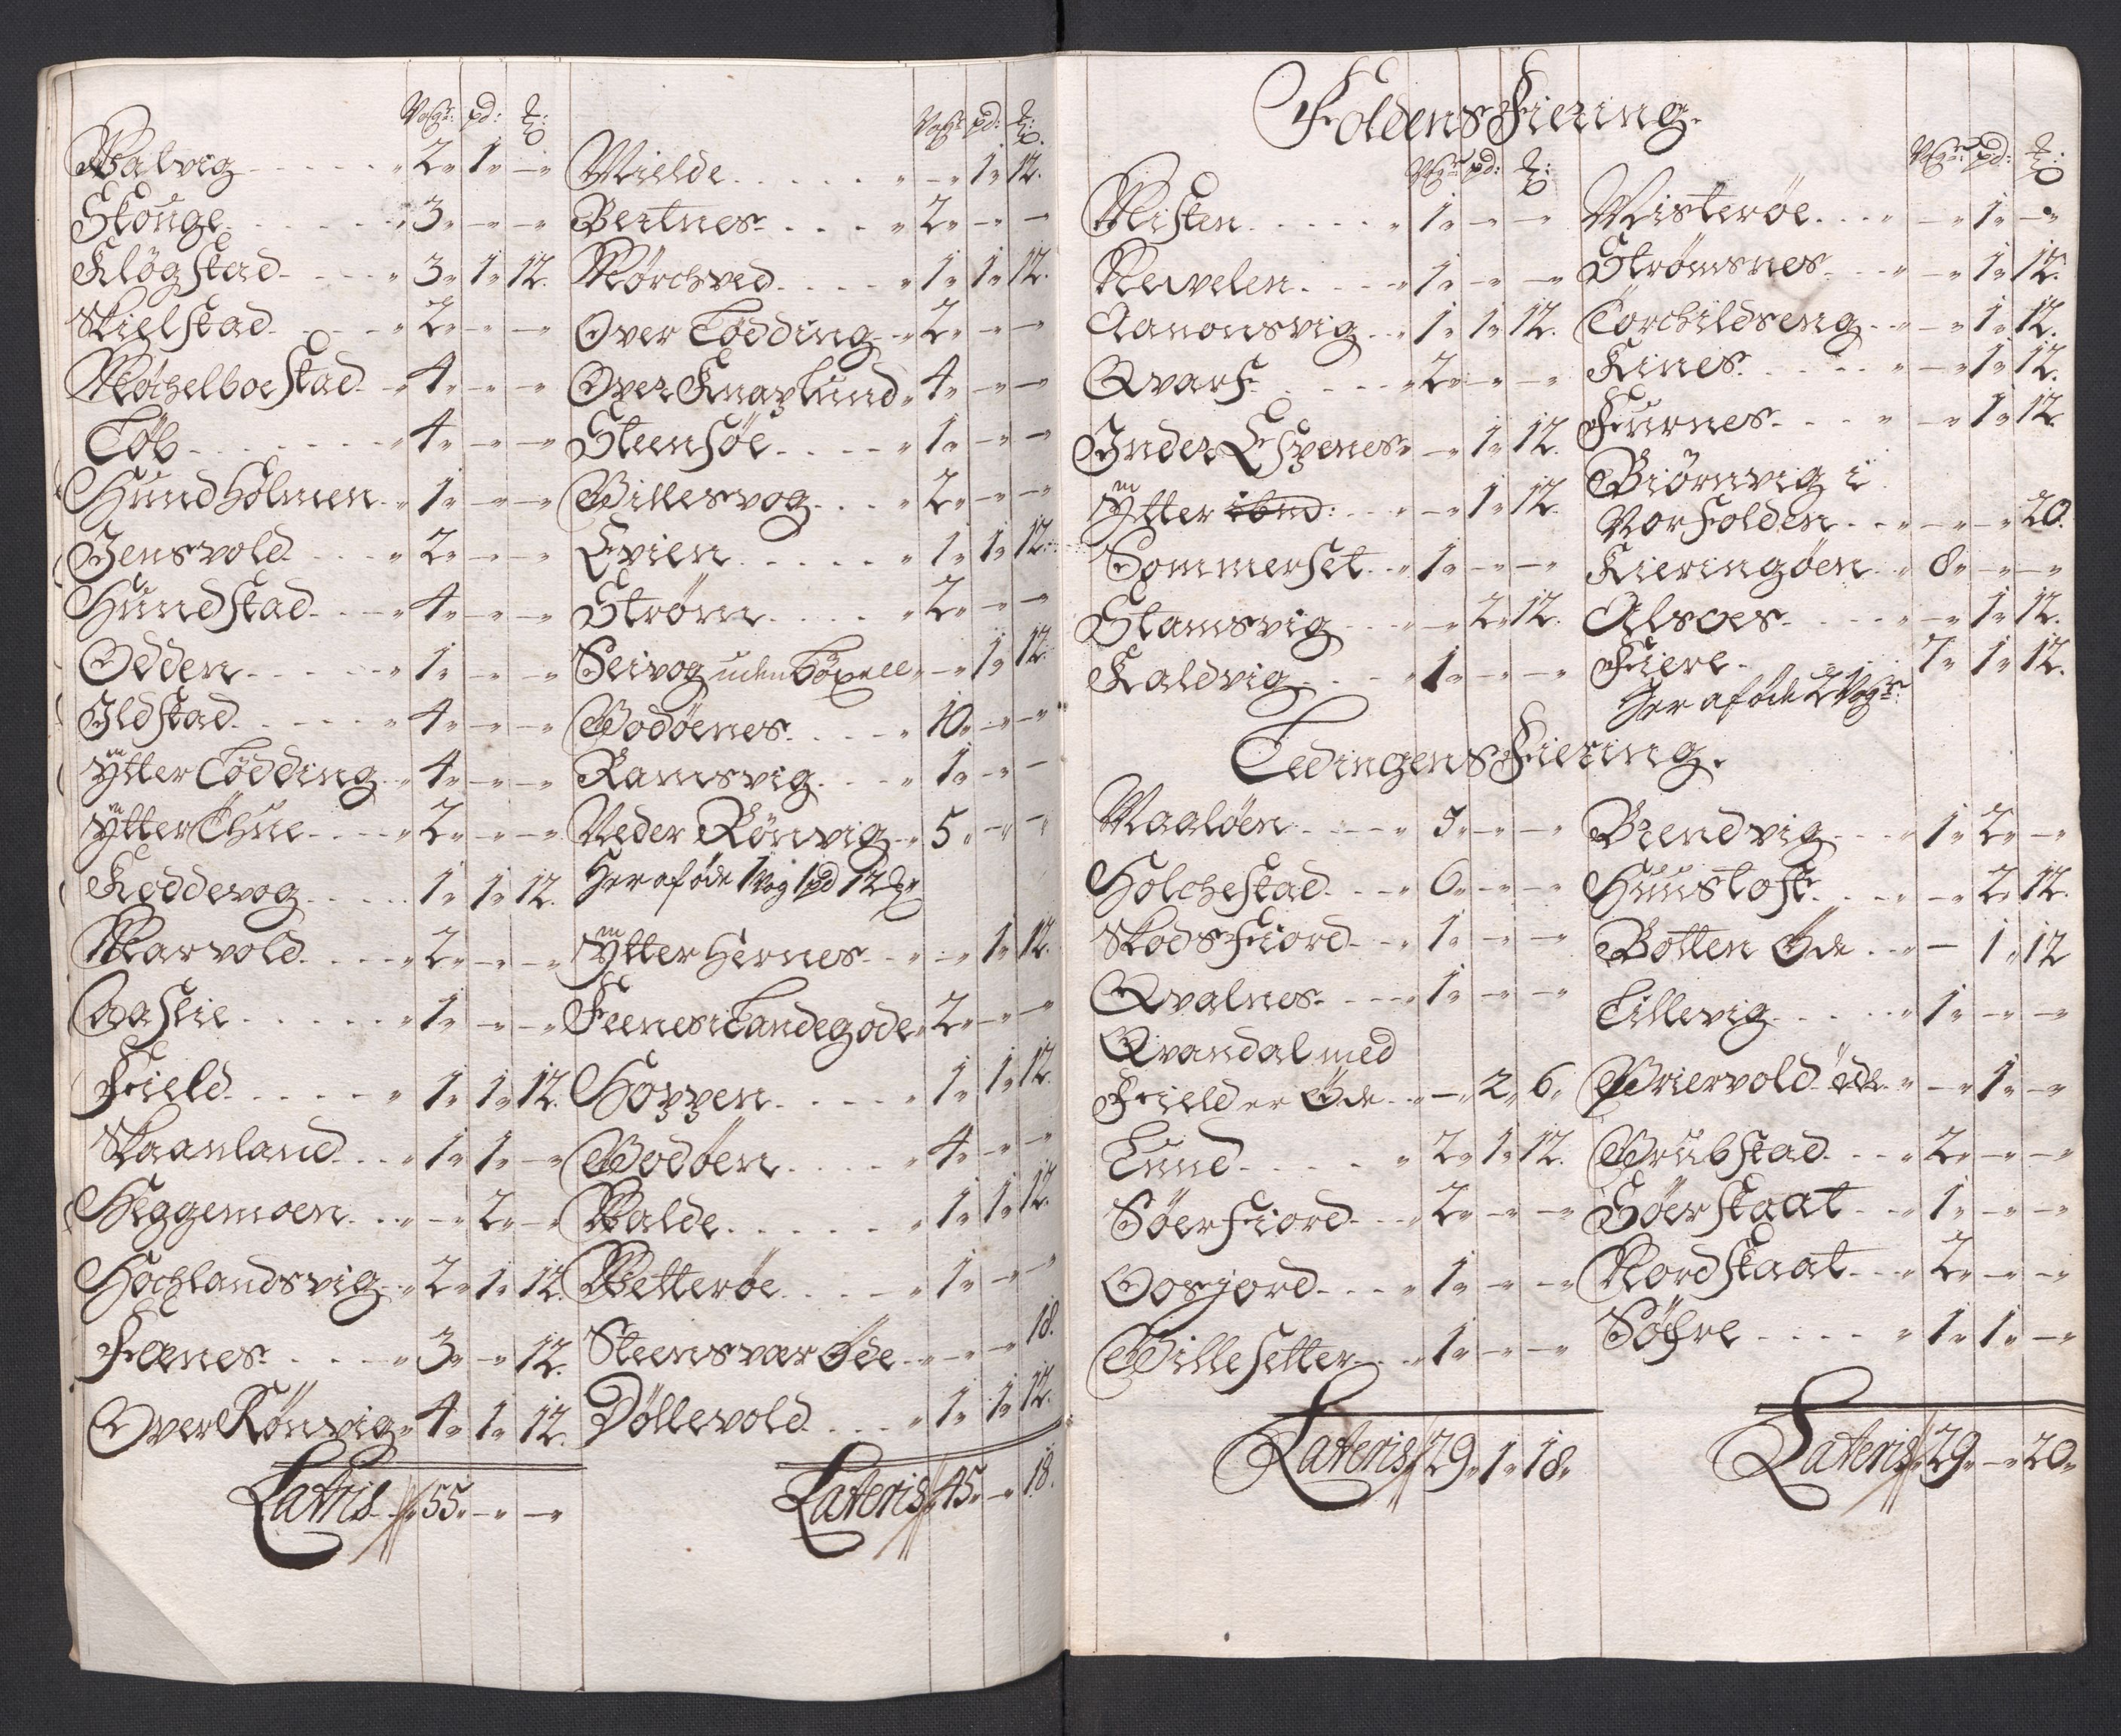 Vog: pd: ℔:
Valvig - - - - - „ 2„ 1„ -„
Skouge - - - - - „ 3„ -„ -„
Kløgstad - - - - „ 3„ 1„ 12.
Skielstad - - - - „ 2„ -„ -„
Møchelboestad - „ 4„ -„ -„
Løb - - - - - „ 4„ -„ -„
Hundholmen - „ 1„ -„ -„
Jensvold - - - „ 2„ -„ -„
Hundstad - - - „ 4„ -„ -„
Odden - - - - - „ 1„ -„ -„
Ildstad - - - - „ 4„ -„ -„
Ytter Lødding - „ 4„ -„ -„
Ytter Thue - - - „ 2„ -„ -„
Koddevog - - - - 1„ 1„ 12.
Marvold - - - - „ 2„ -„ -„
Aaslie - - - - „ 1„ -„ -„
Field - - - - „ 1„ 1„ 12.
Skaanland - - - „ 1„ 1„ -„
Heggemoen - - „ -„ 2„ -„
Hochlandsvig - „ 2„ 1„ 12.
Fenes - - - - „ 3„ -„ 12.
Over Rønvig „ 4„ 1„ 12.
Lateris - „ 55„ -„ -„
Vog: pd: ℔:
Mielde - - - - - „ -„ 1„ 12.
Bertnes - - - - „ 2„ -„ -„
Mørchved - - - - „ 1„ 1„ 12.
Over Lødding - „ 2„ -„ -„
Over Knaplund „ 4„ -„ -„
Steensøe - - - - „ 1„ -„ -„
Gillesvog - - - „ 2„ -„ -„
Evien - - - - - „ 1„ 1„ 12.
Strøm - - - - - „ 2„ -„ -„
Seivog uden „ -„ 1„ 12.
Bodøenes - - - - „ 10„ -„ -„
Ramsvig - - - „ 1„ -„ -
Neder Rønvig - „ 5„ -„ -„
Her af øde 1 Vog 1 pd 12 ℔
Ytter Hernes - - „ -„ 1„ 12.
Feenes i Landegode „ 2„ -„ -„
Hoppen - - - - „ 1„ 1„ 12.
Bodøen - - - - „ 4„ -„ -„
Valde - - - - - „ 1„ 1„ 12.
Vetterøe - - - - „ 1„ -„ -„
Steensvær Øde - „ -„ -„ 18.
Døllevold - - - „ 1„ 1„ 12.
Lateris „ 45„ -„ 18.
Foldens Fiering.
Vog: pd: ℔:
Misten - - - - - „ 1„ -„ -„
Mevelen - - - - „ 1„ -„ -„
Aanonsvig - - „ 1„ 1„ 12.
Qvarf - - - - „ 2„ -„ -„
Inder Espenes „ -„ 1„ 12.
Ytter ibnd: - - - „ -„ 1„ 12.
Sommerset - - „ 1„ -„ -„
Stamsvig - - - „ -„ 2„ 12.
Kaldvig - - - - „ 1„ -„ -„
Vog: pd: ℔:
Misterøe - - - „ -„ 1„ -„
Strømsnes - - - „ -„ 1„ 12.
Torchildseng - - „ -„ 1„ 12.
Kines - - - - - „ -„ 1„ 12.
Furnes - - - - „ -„ 1„ 12.
Biørnvig i
Nor Folden - - „ -„ -„ 20.
Kieringøen - „ 8„ -„ -„
Alsoes - - - - „ -„ 1„ 12.
Fiere - 7„ 1„ 12.
Her af øde 2 Vog:
Ledingens Fiering.
Maaløen - - - - „ 5„ -„ -„
Holchestad - - - „ 6„ -„ -„
Skodsfiord - - - „ 1„ -„ -„
Qvalnes - - - - „ 1„ -„ -„
Qvandal med
Field er Øde - - „ -„ 2„ 6„
Lund - - - - - „ 2„ 1„ 12.
Søerfiord - - - „ 2„ -„ -„
Oosjord - - - - „ 1„ -„ -„
Villesetter - - „ 1„ -„ -„
Lateris „ 29„ 1„ 18„
Brendvig - - - „ 1„ 2„ -„
Huustoft - - „ -„ 2„ 12.
Botten Øde - „ - 1„ 12
Tillevig - - - - „ 1„ -„ -„
Griervold øde „ -„ 1„ -„
Grubstad - - - „ 2„ -„ -„
Søerstaat - - „ 1„ -„ -„
Nordstaat - - „ 2„ -„ -„
Søfre - - - - „ 1„ 1„ -„
Lateris „ 29„ -„ 20„